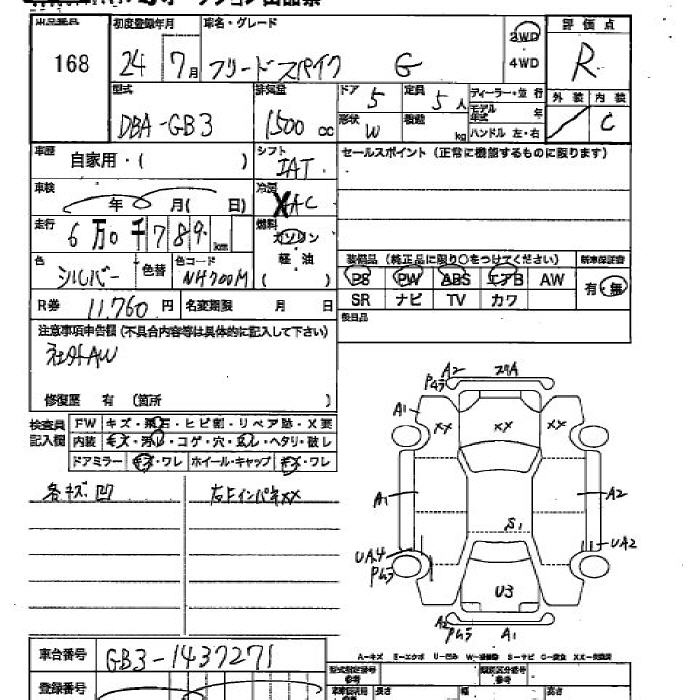 出品番号 初度登録年月 車名・グレード 2WD 評価点
168 24年 7月 フリードスパイク G 4WD R
型式 排気量 ドア 5 定員 5人 ディーラー・並行 外装 内装
DBA-GB3 1500cc 形状 W 積載 kg モデル年式 年 C
ハンドル 左・右
車歴 自家用・( ) シフト IAT セールスポイント(正常に機能するものに限ります)
車検 年 月( 日) 冷房 AC
走行 6万0千789km 燃料 ガソリン
軽油
( )
色 シルバー 色替 色コード NH700M
装備品(純正品に限り○をつけてください) 新車保証書
PS PW ABS エアB AW 有・無
SR ナビ TV カワ
R券 11,760円 名変期限 月 日 後日品
注意事項申告欄(不具合内容等は具体的に記入して下さい)
社外AW
修復歴 有 (箇所 )
検査員記入欄 FW キズ・飛石・ヒビ割・リペア跡・X要
内装 キズ・汚れ・コゲ・穴・瓦し・ヘタリ・破レ
ドアミラー キズ・ワレ ホイール・キャップ キズ・ワレ
各キズ凹 右Fインパネxx
A2 Pムラ
A1 XX XX XX
A1 A2
S1
UA4 Pムラ UA2
U3
A2 Pムラ A1
車台番号 GB3-1437271
A-キズ E-エクボ U-凹み
登録番号
型式指定番号 参考 類別区分番号 参考
長さ 幅 高さ